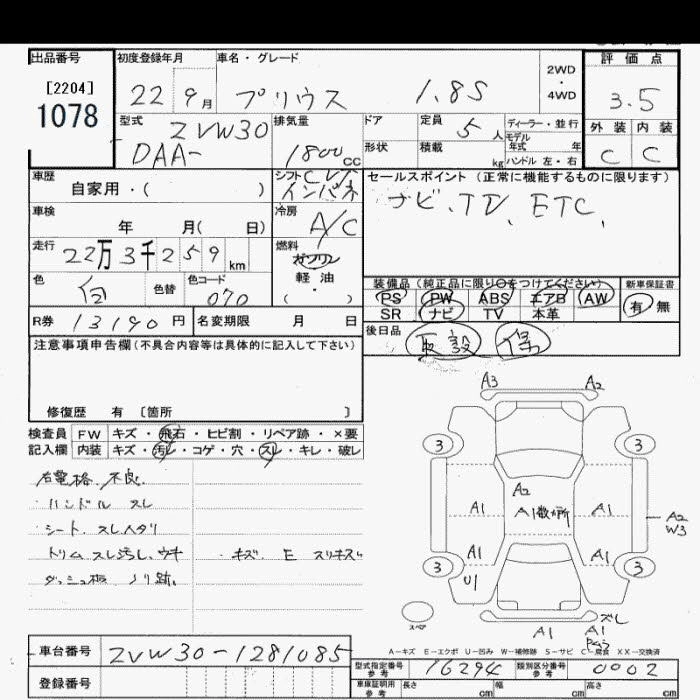 出品番号 初度登録年月 車名・グレード 評価点
[2204]
1078
22 9月 プリウス 1.8S 2WD・4WD 3.5
型式 ZVW30 排気量 ドア 定員 5人 ディーラー・並行 外装 内装
DAA- 1800cc 形状 積載 kg モデル年式 年 C C
ハンドル 左・右
車歴 シフト インパネ セールスポイント (正常に機能するものに限ります)
自家用・( ) ナビ、TV、ETC、
車検 年 月( 日) 冷房 A/C
走行 22万3千259km 燃料 ガソリン
軽油
・( )
色 白 色替 色コード 070
装備品(純正品に限り○をつけてください) 新車保証書
PS PW ABS エアB AW 有 無
SR ナビ TV 本革
R券 13190円 名変期限 月 日 後日品 取設 保
注意事項申告欄(不具合内容等は具体的に記入して下さい)
修復歴 有 〔箇所 〕
検査員 FW キズ・飛石・ヒビ割・リペア跡・×要
記入欄 内装 キズ・汚レ・コゲ・穴・スレ・キレ・破レ
右電格、不良、
・ハンドル スレ
・シート、スレ
トリム スレ汚レ、ウキ ・キズ、E スリキズ
ダッシュ板 ノリ跡、
A3 A2
3 3
A2
A1 A1数ヶ所 A1 A2
W3
A1 A1
3 U1 3
スペア
A1 A1 ズレ
A-キズ E-エクボ U-凹み W-補修跡 S-サビ C-腐食 XX-交換済
車台番号 ZVW30-1281085
型式指定番号 参考 16294 類別区分番号 参考 0002
登録番号 車庫証明用 参考 長さ cm 幅 cm 高さ cm